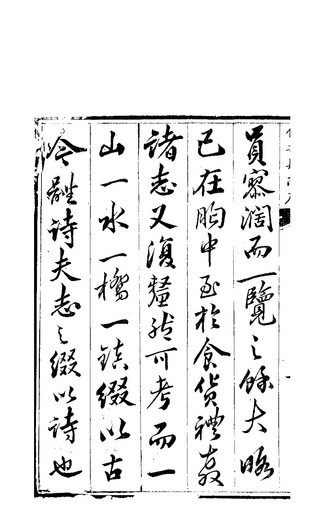 員寥濶而一覽之餘大略
已在胸中至於食貨禮教
諸志又復釐然可考而一
山一水一橋一鎮綴以古
今體詩夫志之綴以詩也